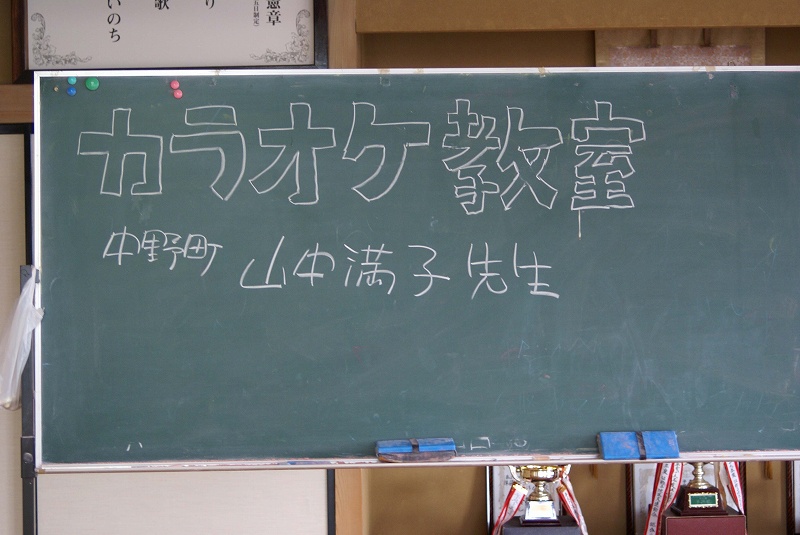 カラオケ教室
中野町 山中満子先生
憲章
り
歌
いのち